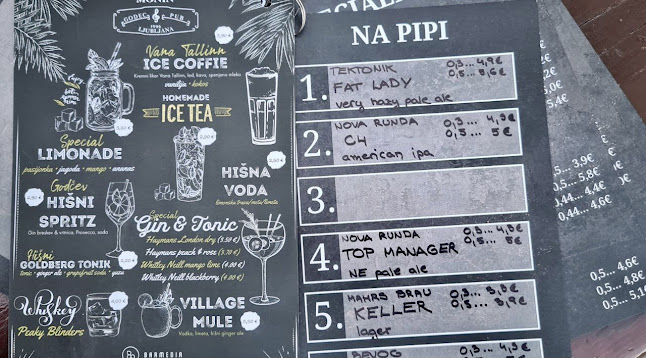 MONIN
GODEC PUB
1994
LJUBLJANA
Vana Tallinn
ICE COFFIE
Kremni liker Vana Tallinn, led, kava, spenjeno mleko
vanilija • kokos
HOMEMADE
ICE TEA
Special
LIMONADE
pasijonka • jagoda • mango • ananas
Godčev
HIŠNI
SPRITZ
Gin breskev & vrtnica, Prosecco, soda
HIŠNA
VODA
limonska trava/meta/limeta
Special
Gin & Tonic
Haymans London dry (5.50 €)
Haymans peach & rose
Whitley Neill mango lime
Whitley Neill blackberry
Hišni
GOLDBERG TONIK
tonic • ginger ale • grapefruit soda • yuzu
Whiskey
Peaky Blinders
VILLAGE
MULE
Vodka, limeta, hišni ginger ale
BARMEDIA
NA PIPI
1.
TEKTONIK 0,3... 4,9€
0,5... 5,6€
FAT LADY
very hazy pale ale
2.
NOVA RUNDA 0,3... 4,3€
C4 0,5... 5€
american ipa
3.
4.
NOVA RUNDA 0,3... 4,3€
TOP MANAGER 0,5... 5€
NE pale ale
5.
MAHRS BRAU 0,3... 3,3€
KELLER 0,5... 3,9€
lager
BEVOG
... 3,9€
0,5... 5,8€
0,44... 4,8€
0,44...
0,5... 4,6€
0,5... 4,8€
0,5... 5,1€